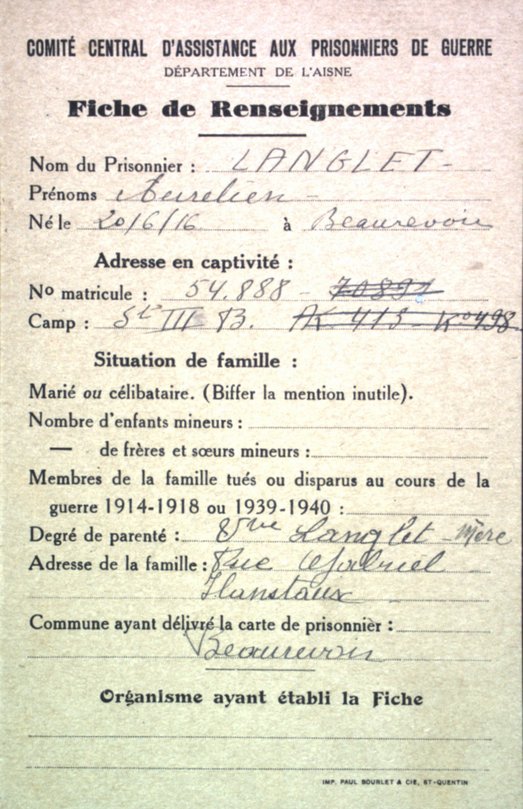 COMITÉ CENTRAL D'ASSISTANCE AUX PRISONNIERS DE GUERRE
DÉPARTEMENT DE L'AISNE
Fiche de Renseignements
Nom du Prisonnier : LANGLET -
Prénoms Aurelien -
Né le 20/6/16 à Beaurevoir
Adresse en captivité :
No matricule : 54.888 - 70891
Camp : St III B. AK 413 - Ko 498
Situation de famille :
Marié ou célibataire. (Biffer la mention inutile).
Nombre d'enfants mineurs :
— de frères et sœurs mineurs :
Membres de la famille tués ou disparus au cours de la
guerre 1914-1918 ou 1939-1940 :
Degré de parenté : Vve Langlet - Mère
Adresse de la famille : Rue Gabriel
Hanotaux
Commune ayant délivré la carte de prisonnier :
Beaurevoir
Organisme ayant établi la Fiche
IMP. PAUL BOURLET & CIE, ST-QUENTIN